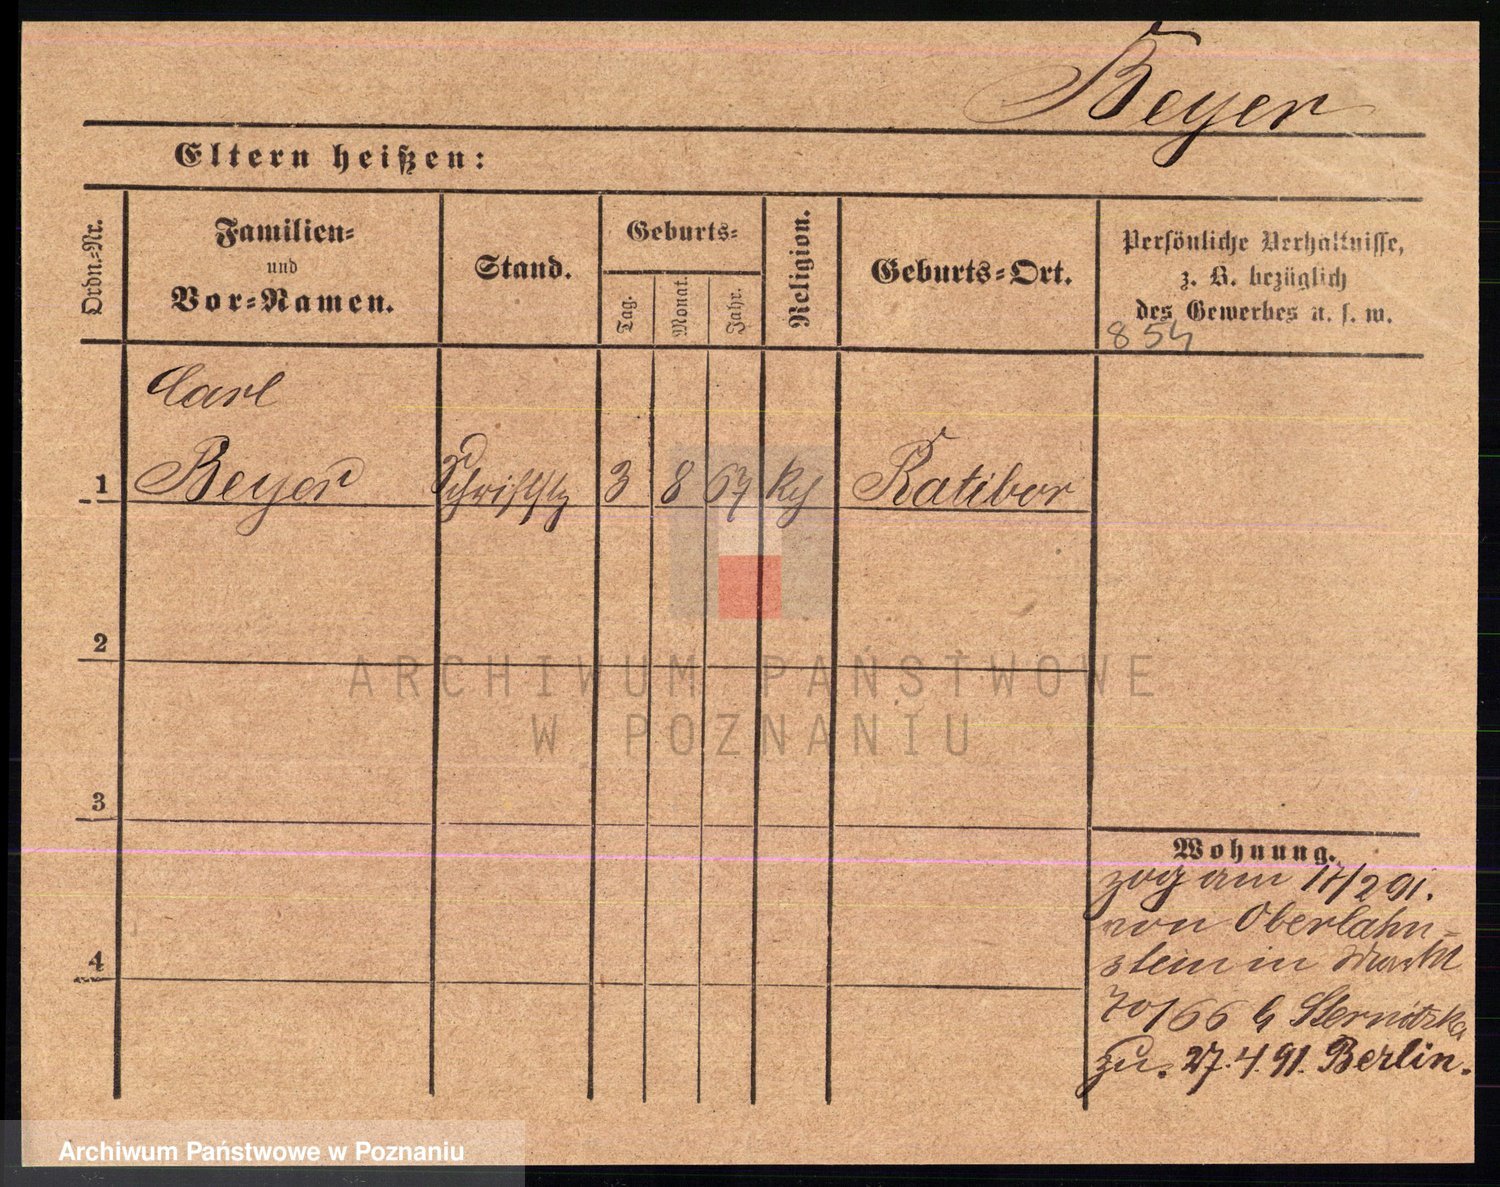 Beyer
Eltern heißen:
Ordn.-Nr.
Familien-
und
Vor-Namen.
Stand.
Geburts-
Tag.
Monat.
Jahr.
Religion.
Geburts-Ort.
Persönliche Verhältnisse,
z. B. bezüglich
des Gewerbes u. s. w.
854
Carl
1 Beyer Schriftstz 3 8 67 Ratibor
2
3
4
Wohnung.
zog am 17/2 91.
von Oberlahn-
stein in Markt
70/66 b Sternitzke
zu. 27.4.91. Berlin.
ARCHIWUM PAŃSTWOWE
W POZNANIU
Archiwum Państwowe w Poznaniu